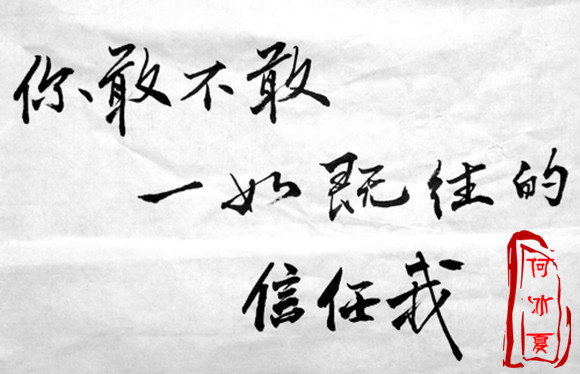 你敢不敢
一如既往的
信任我
何冰夏